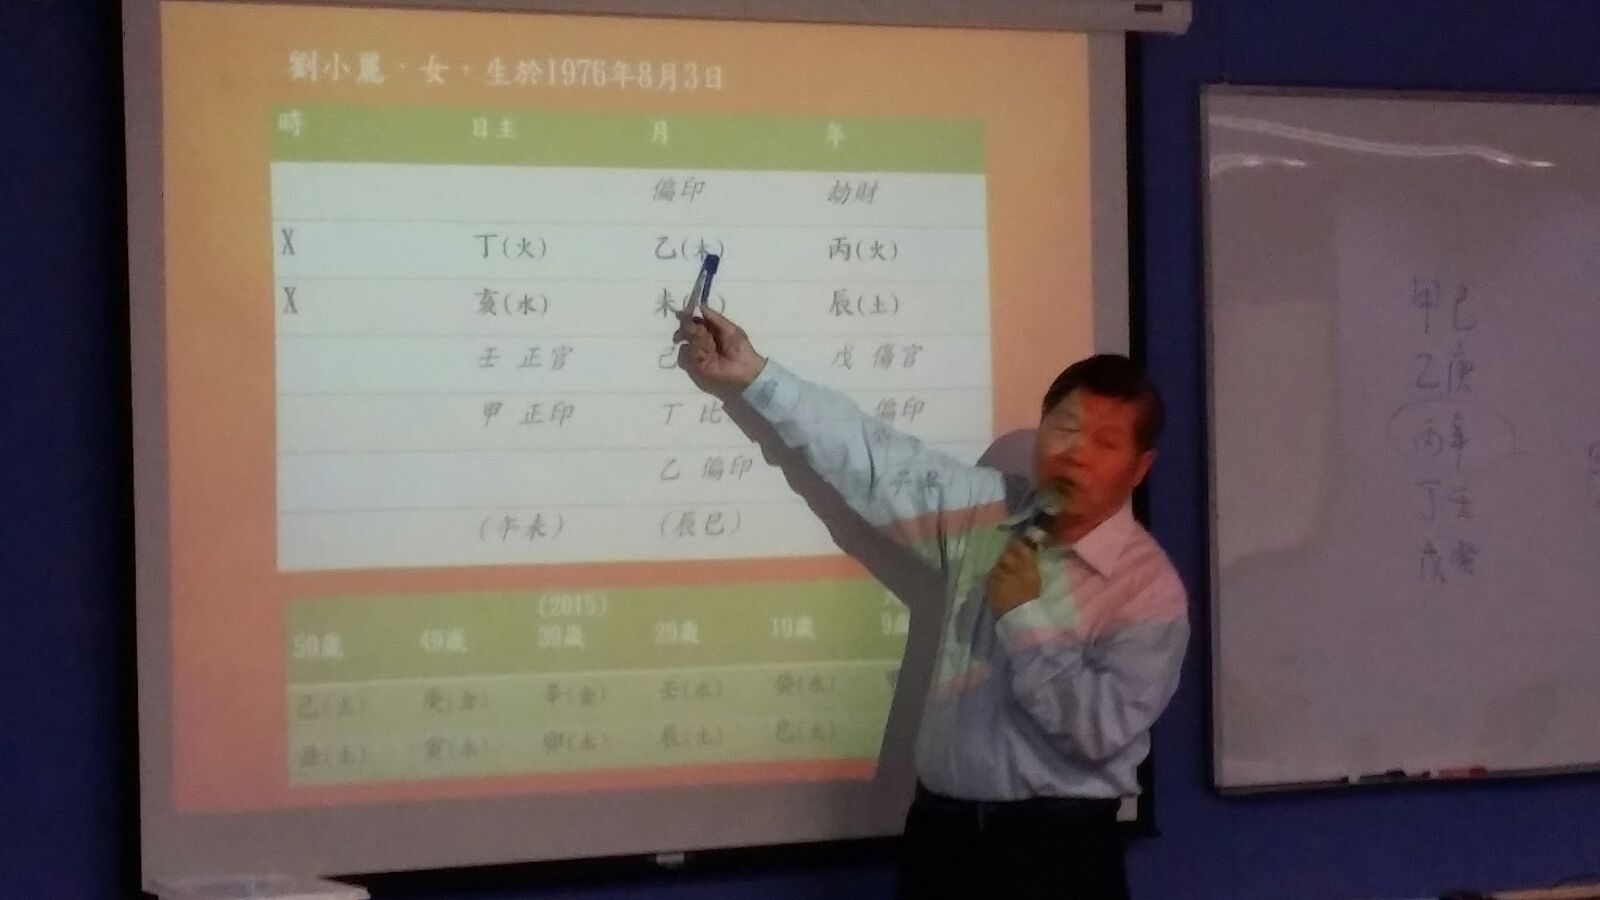 劉小麗，女，生於1976年8月3日
時 日主 月 年
偏印 劫財
X 丁(火) 乙(木) 丙(火)
X 亥(水) 未 辰(土)
壬 正官 己 戊 傷官
甲 正印 丁 比 偏印
乙 偏印
(午未) (辰巳)
(2015)
59歲 49歲 39歲 29歲 19歲 9歲
己(土) 庚(金) 辛(金) 壬(水) 癸(水)
丑(土) 寅(木) 卯(木) 辰(土) 巳(火)
甲己
乙庚
丙辛
丁壬
戊癸